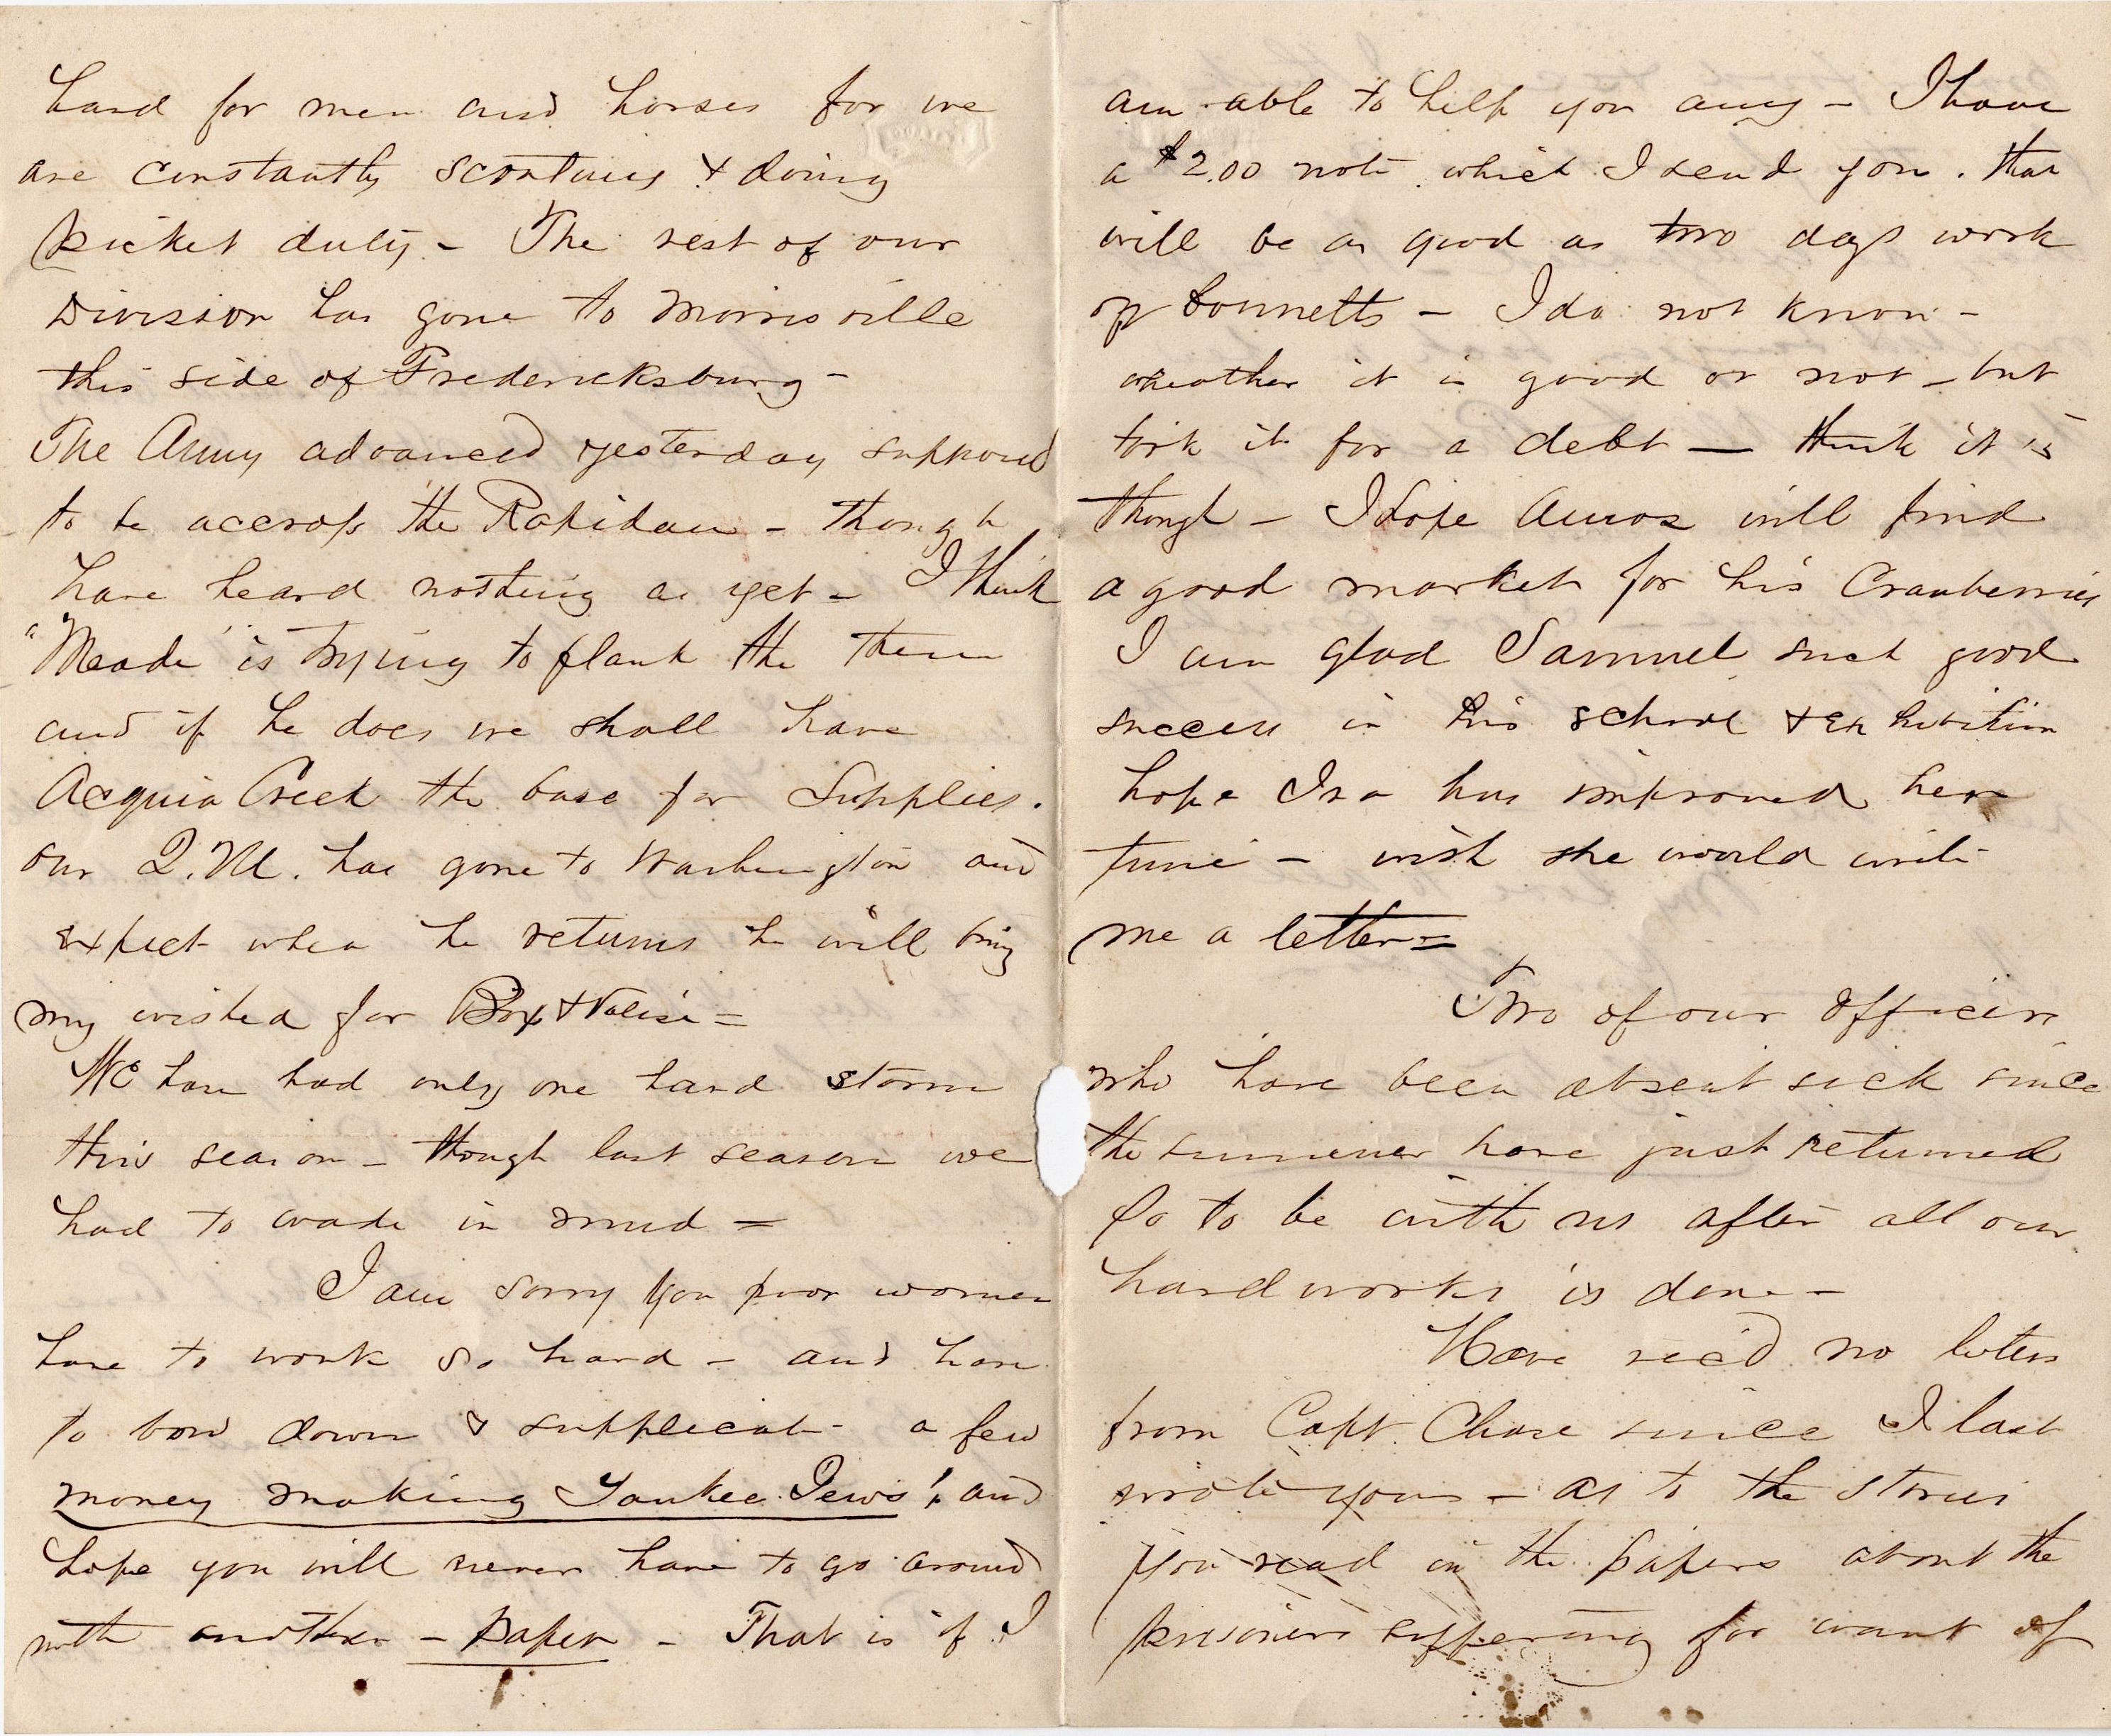 hard for men and horses for we
are constantly scouting & doing
picket duty - The rest of our
Division has gone to Morrisville
this side of Fredericksburg -
The Army advanced yesterday supposed
to be accross the Rapidan - though
have heard nothing as yet - I think
"Meade" is trying to flank the them
and if he does we shall have
Acquia Creek the base for Supplies.
our Q.M. has gone to Washington and
expect when he returns he will bring
my wished for Box & Valise =
We have had only one hard storm
this season - though last season we
had to wade in mud =
I am sorry you poor women
have to work so hard - and have
to bow down & supplicate a few
money making Yankee Jews! and
hope you will never have to go around
with another - paper - That is if I
am able to help you any - I have
a $2.00 note which I send you. that
will be as good as two days work
on bonnetts - I do not know -
wheather it is good or not - but
took it for a debt - think it is
though - I hope Amos will find
a good market for his Cranberries
I am glad Samuel such good
success in his school & exhibition
hope Isa has improved her
time - wish she would write
me a letter =
Two of our officers
who have been absent sick since
the summer have just returned
so to be with us after all our
hard works is done -
Have rec'd no letters
from Capt. Chase since I last
wrote you - as to the stories
you read in the papers about the
prisoners suffering for want of